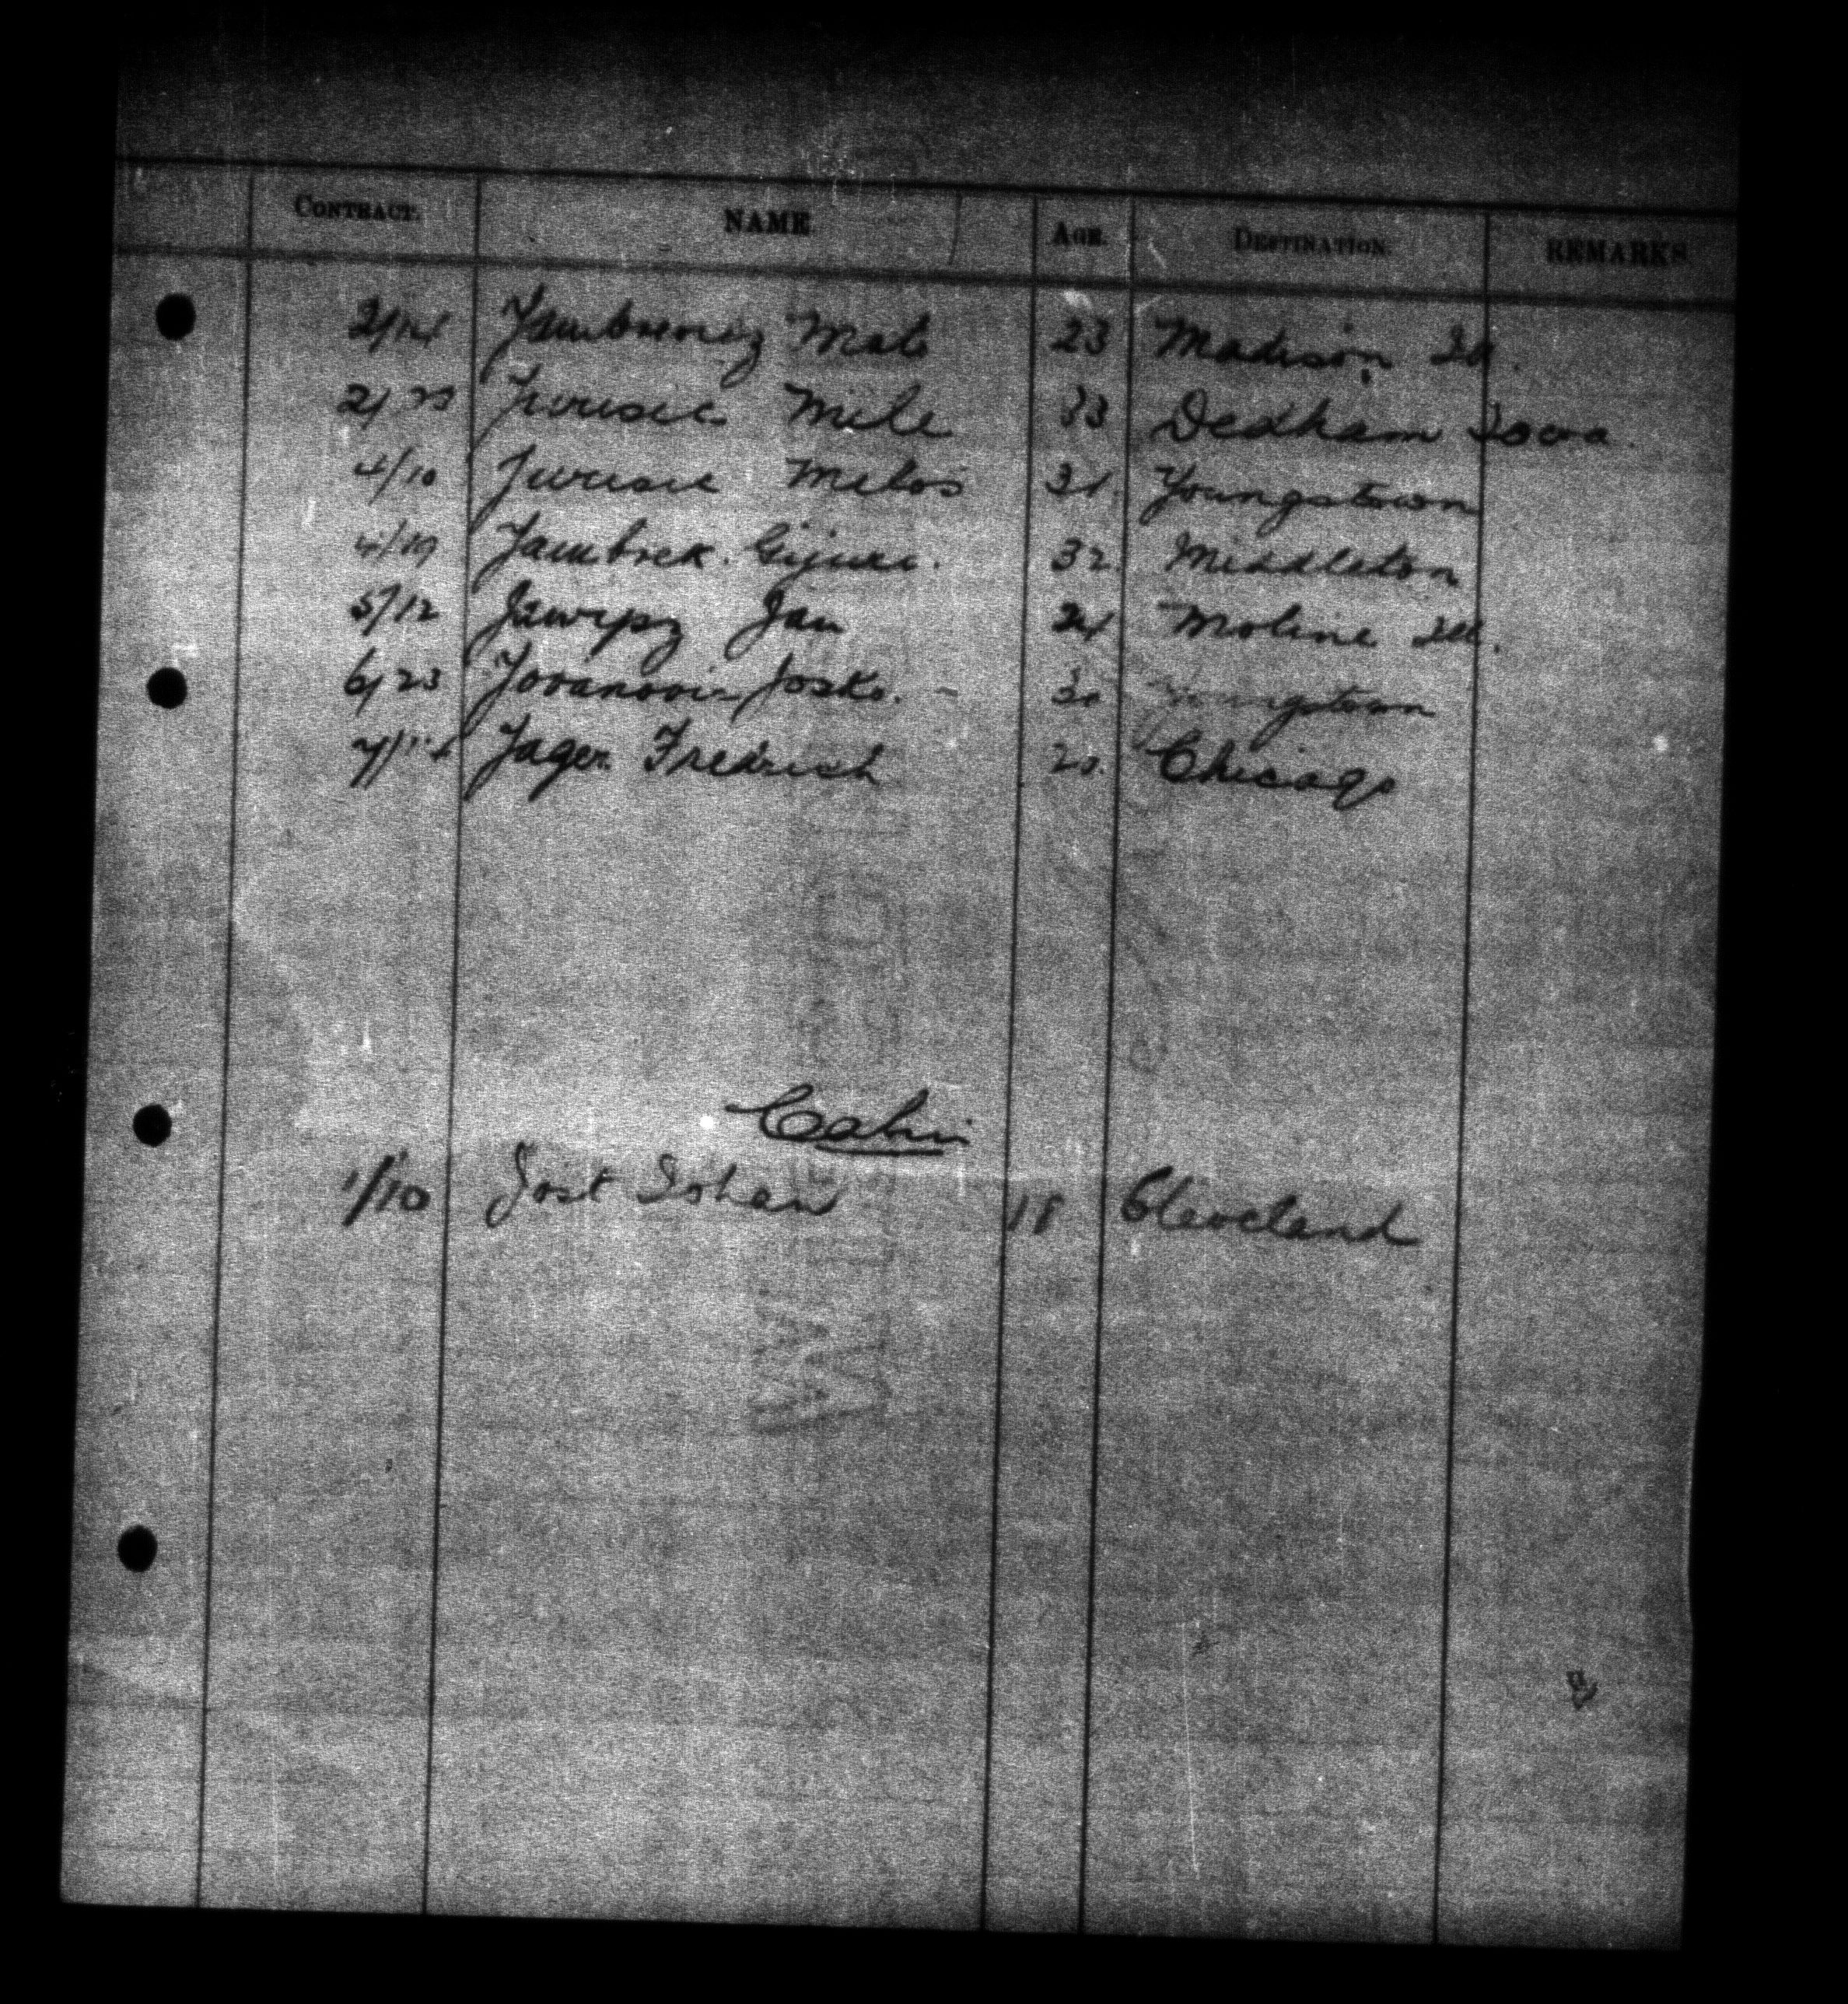 CONTRACT. NAME AGE. DESTINATION. REMARKS
2/14 Mate 23 Madison
2/23 Jurisic Mile 33 Dedham Iowa.
4/10 Jurisic Milos 31. Youngstown
4/19 Jambrek. 32. Middleton
5/12 Jan 24 Moline Ill.
6/23 Jovanovic Josko. 30 Youngstown
7/14 Jager Fredrich 20. Chicago
Cabin
1/10 Jost Johan 18 Cleveland